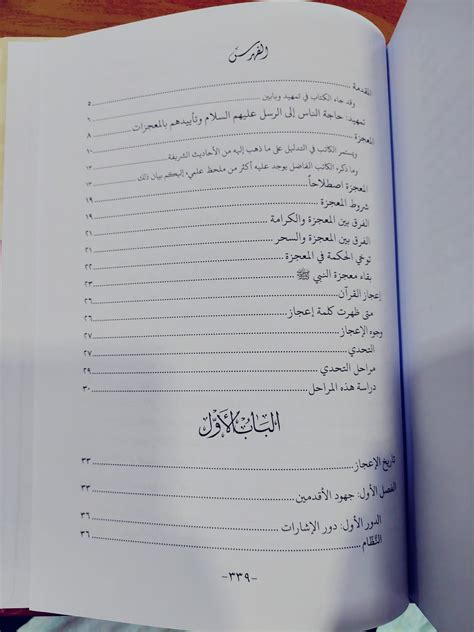 الفهرس
المقدمة
وقد جاء الكتاب في تمهيد وبابين ٥
تمهيد: حاجة الناس إلى الرسل عليهم السلام وتأييدهم بالمعجزات ٦
المعجزة ٨
ويستمر الكاتب في التدليل على ما ذهب إليه من الأحاديث الشريفة ١٠
وما ذكره الكاتب الفاضل يوجد عليه أكثر من ملحظ علمي، إليكم بيان ذلك ١٣
المعجزة اصطلاحاً ١٣
شروط المعجزة ١٩
الفرق بين المعجزة والكرامة ١٩
الفرق بين المعجزة والسحر ٢١
توخي الحكمة في المعجزة ٢١
بقاء معجزة النبي ﷺ ٢٢
إعجاز القرآن ٢٣
متى ظهرت كلمة إعجاز ٢٦
وجوه الإعجاز ٢٦
التحدي ٢٧
مراحل التحدي ٢٧
دراسة هذه المراحل ٢٩
٣٠
الباب الأول
تاريخ الإعجاز ٣٣
الفصل الأول: جهود الأقدمين ٣٣
الدور الأول: دور الإشارات ٣٦
النظام ٣٦
-٣٣٩-